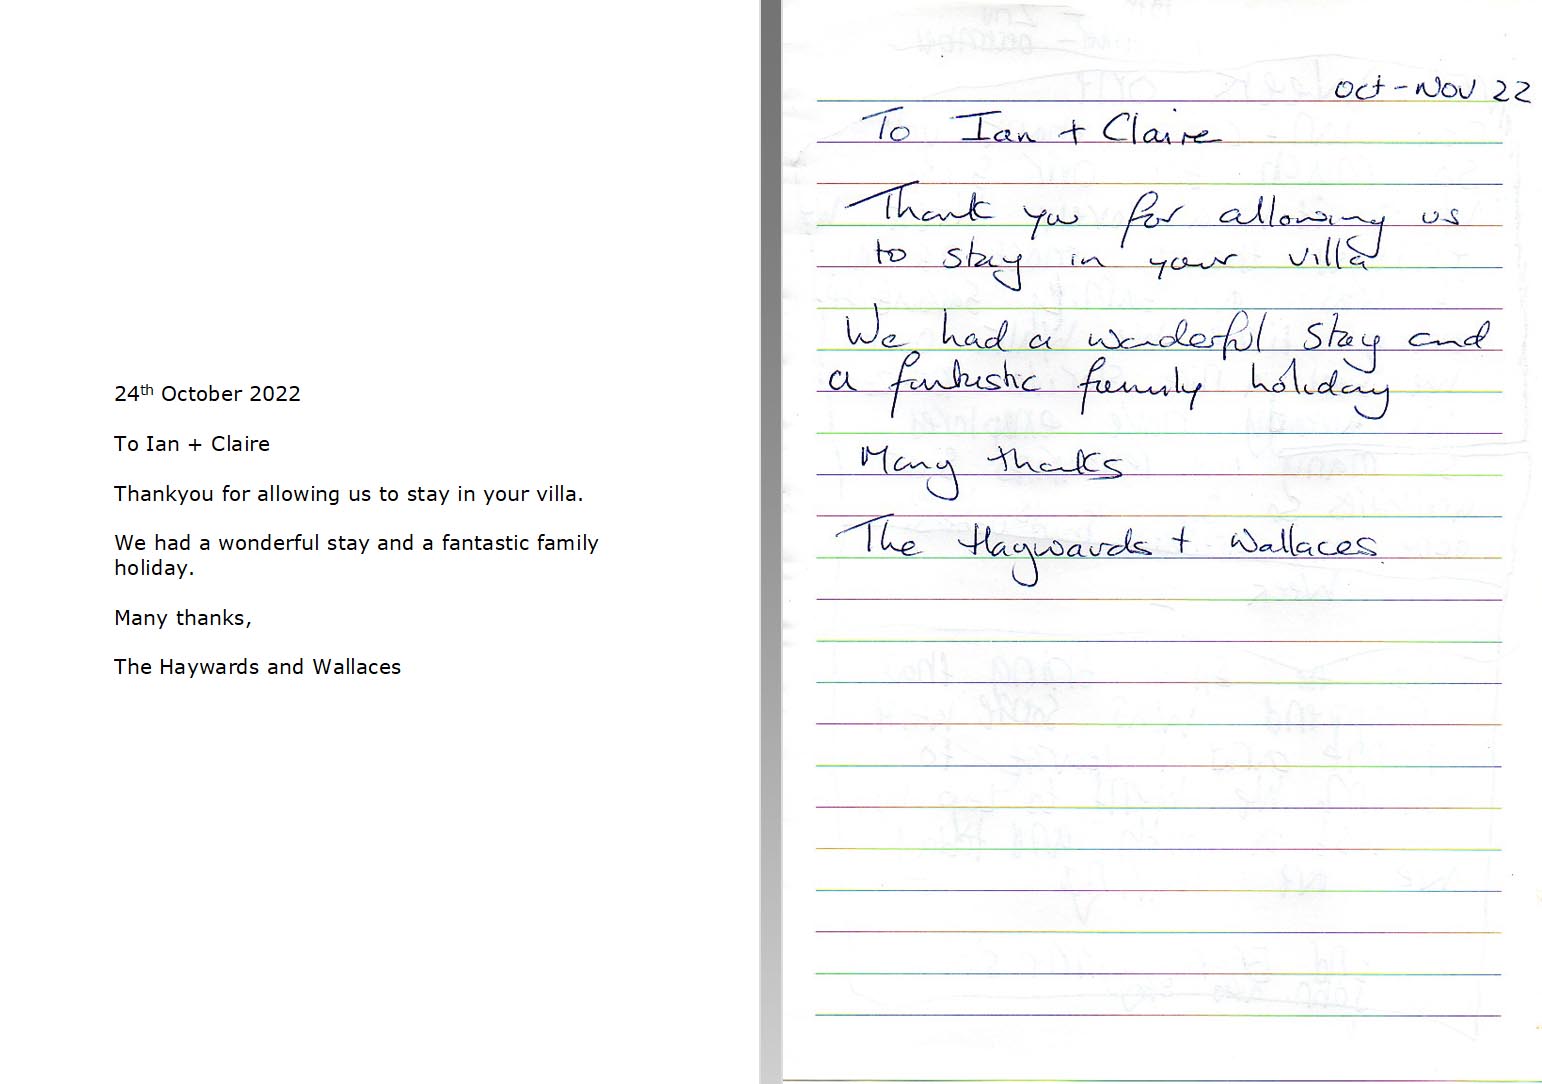 24th October 2022
To Ian + Claire
Thankyou for allowing us to stay in your villa.
We had a wonderful stay and a fantastic family
holiday.
Many thanks,
The Haywards and Wallaces
Oct - Nov 22
To Ian + Claire
Thank you for allowing us
to stay in your villa
We had a wonderful stay and
a fantastic family holiday
Many thanks
The Haywards + Wallaces.